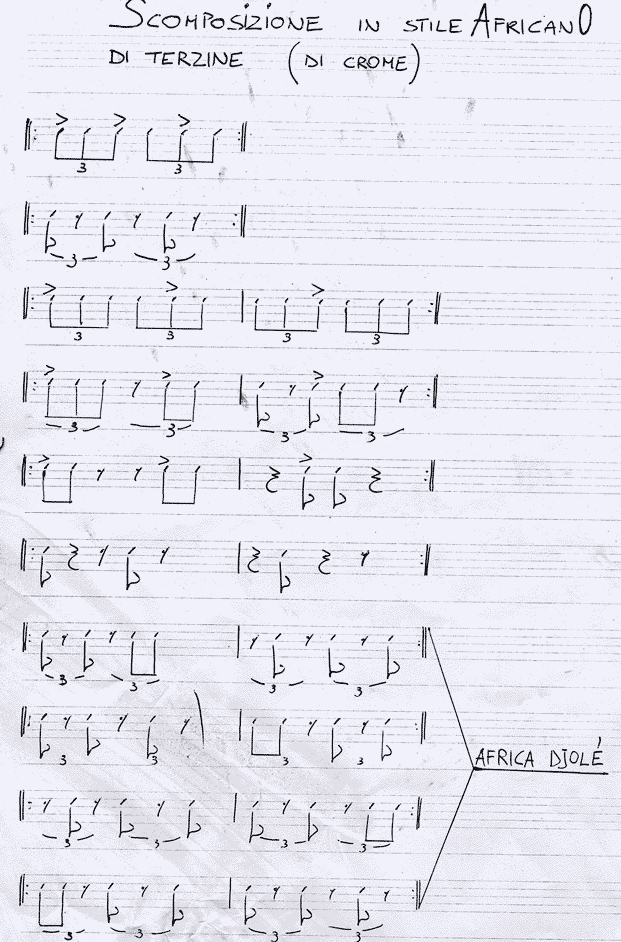 SCOMPOSIZIONE IN STILE AFRICANO
DI TERZINE (DI CROME)
3
3 3
3 3 3
3 3 3 3
3 3 3
3 3 3 3
3 3 3 3
3 3 3 3
3 3 3 3
AFRICA DJOLÉ